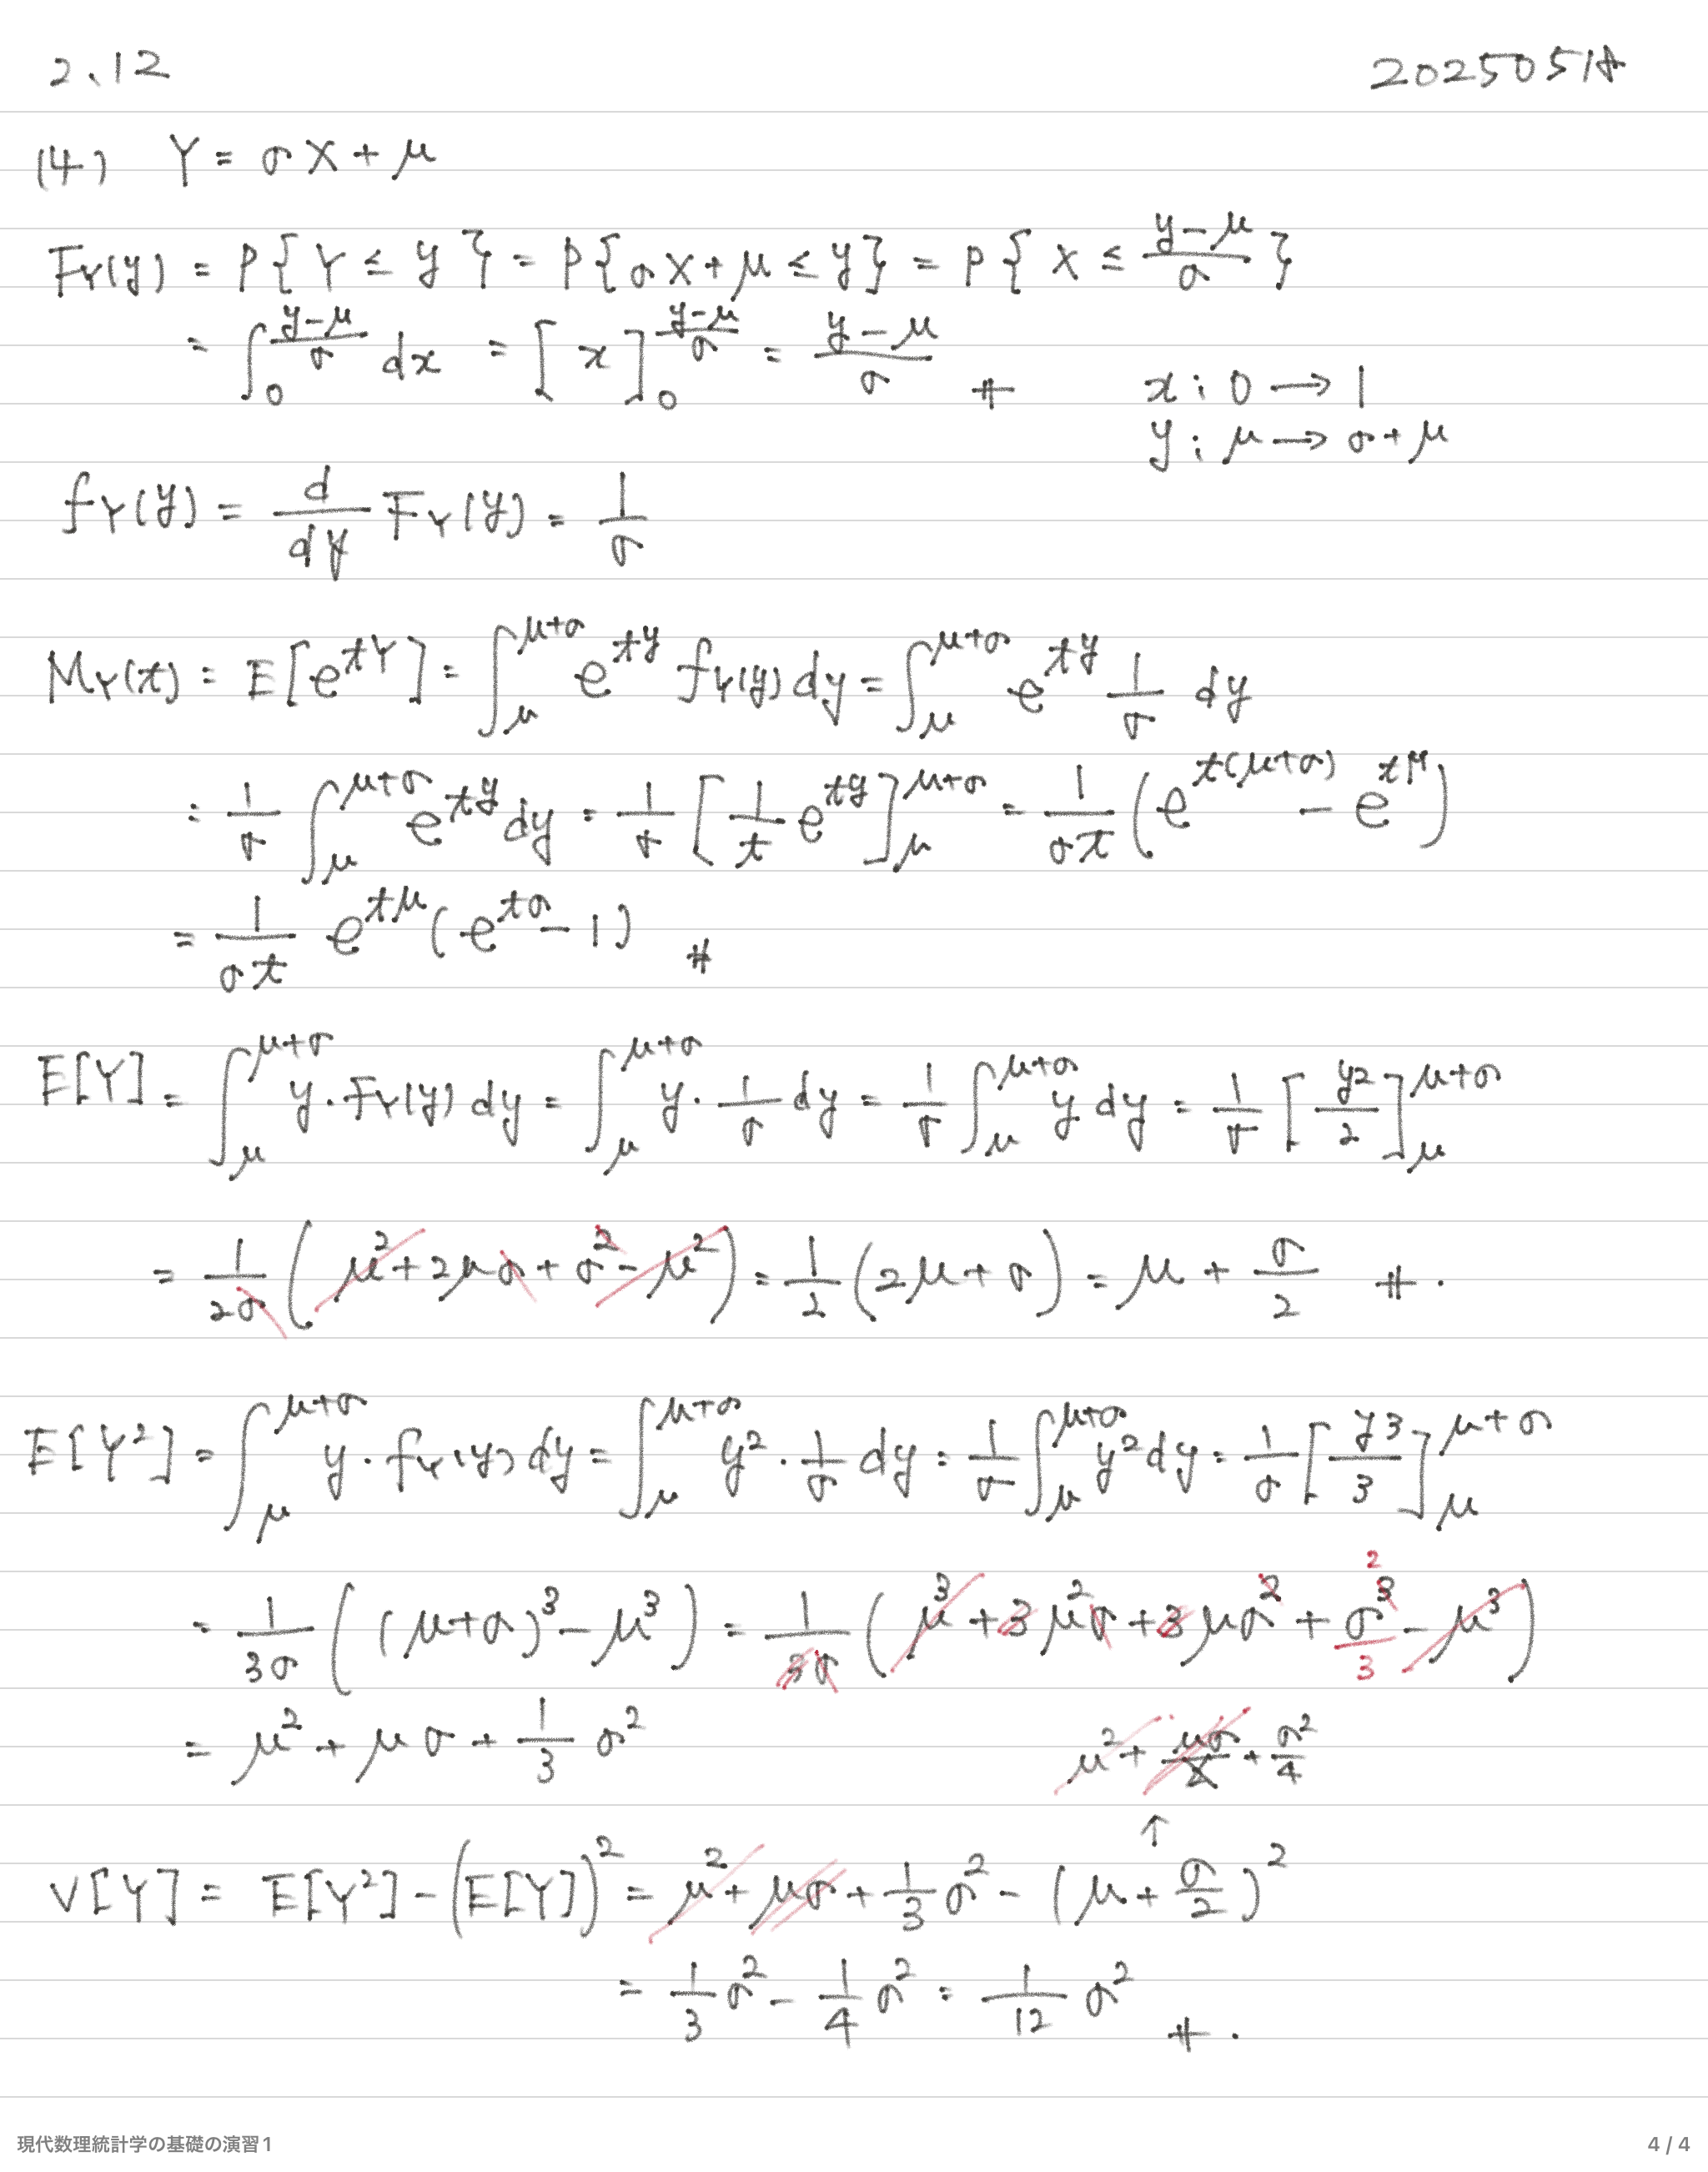 2.12 20250518
(4) Y = σX + μ
F_Y(y) = P{Y ≤ y} = P{σX + μ ≤ y} = P{X ≤ \frac{y-μ}{σ}}
= ∫_0^{\frac{y-μ}{σ}} dx = [x]_0^{\frac{y-μ}{σ}} = \frac{y-μ}{σ} #
x : 0 → 1
y : μ → σ+μ
f_Y(y) = \frac{d}{dy} F_Y(y) = \frac{1}{σ}
M_Y(t) = E[e^{tY}] = ∫_μ^{μ+σ} e^{ty} f_Y(y) dy = ∫_μ^{μ+σ} e^{ty} \frac{1}{σ} dy
= \frac{1}{σ} ∫_μ^{μ+σ} e^{ty} dy = \frac{1}{σ} [\frac{1}{t} e^{ty}]_μ^{μ+σ} = \frac{1}{σt} (e^{t(μ+σ)} - e^{tμ})
= \frac{1}{σt} e^{tμ} (e^{tσ} - 1) #
E[Y] = ∫_μ^{μ+σ} y · F_Y(y) dy = ∫_μ^{μ+σ} y · \frac{1}{σ} dy = \frac{1}{σ} ∫_μ^{μ+σ} y dy = \frac{1}{σ} [\frac{y^2}{2}]_μ^{μ+σ}
= \frac{1}{2σ} (μ^2 + 2μσ + σ^2 - μ^2) = \frac{1}{2} (2μ + σ) = μ + \frac{σ}{2} #.
E[Y^2] = ∫_μ^{μ+σ} y · f_Y(y) dy = ∫_μ^{μ+σ} y^2 · \frac{1}{σ} dy = \frac{1}{σ} ∫_μ^{μ+σ} y^2 dy = \frac{1}{σ} [\frac{y^3}{3}]_μ^{μ+σ}
2
= \frac{1}{3σ} ((μ+σ)^3 - μ^3) = \frac{1}{3σ} (μ^3 + 3μ^2σ + 3μσ^2 + σ^3 - μ^3)
3
= μ^2 + μσ + \frac{1}{3} σ^2
μ^2 + \frac{μσ}{2} + \frac{σ^2}{4}
↑
V[Y] = E[Y^2] - (E[Y])^2 = μ^2 + μσ + \frac{1}{3} σ^2 - (μ + \frac{σ}{2})^2
= \frac{1}{3} σ^2 - \frac{1}{4} σ^2 = \frac{1}{12} σ^2 #.
現代数理統計学の基礎の演習1 4 / 4